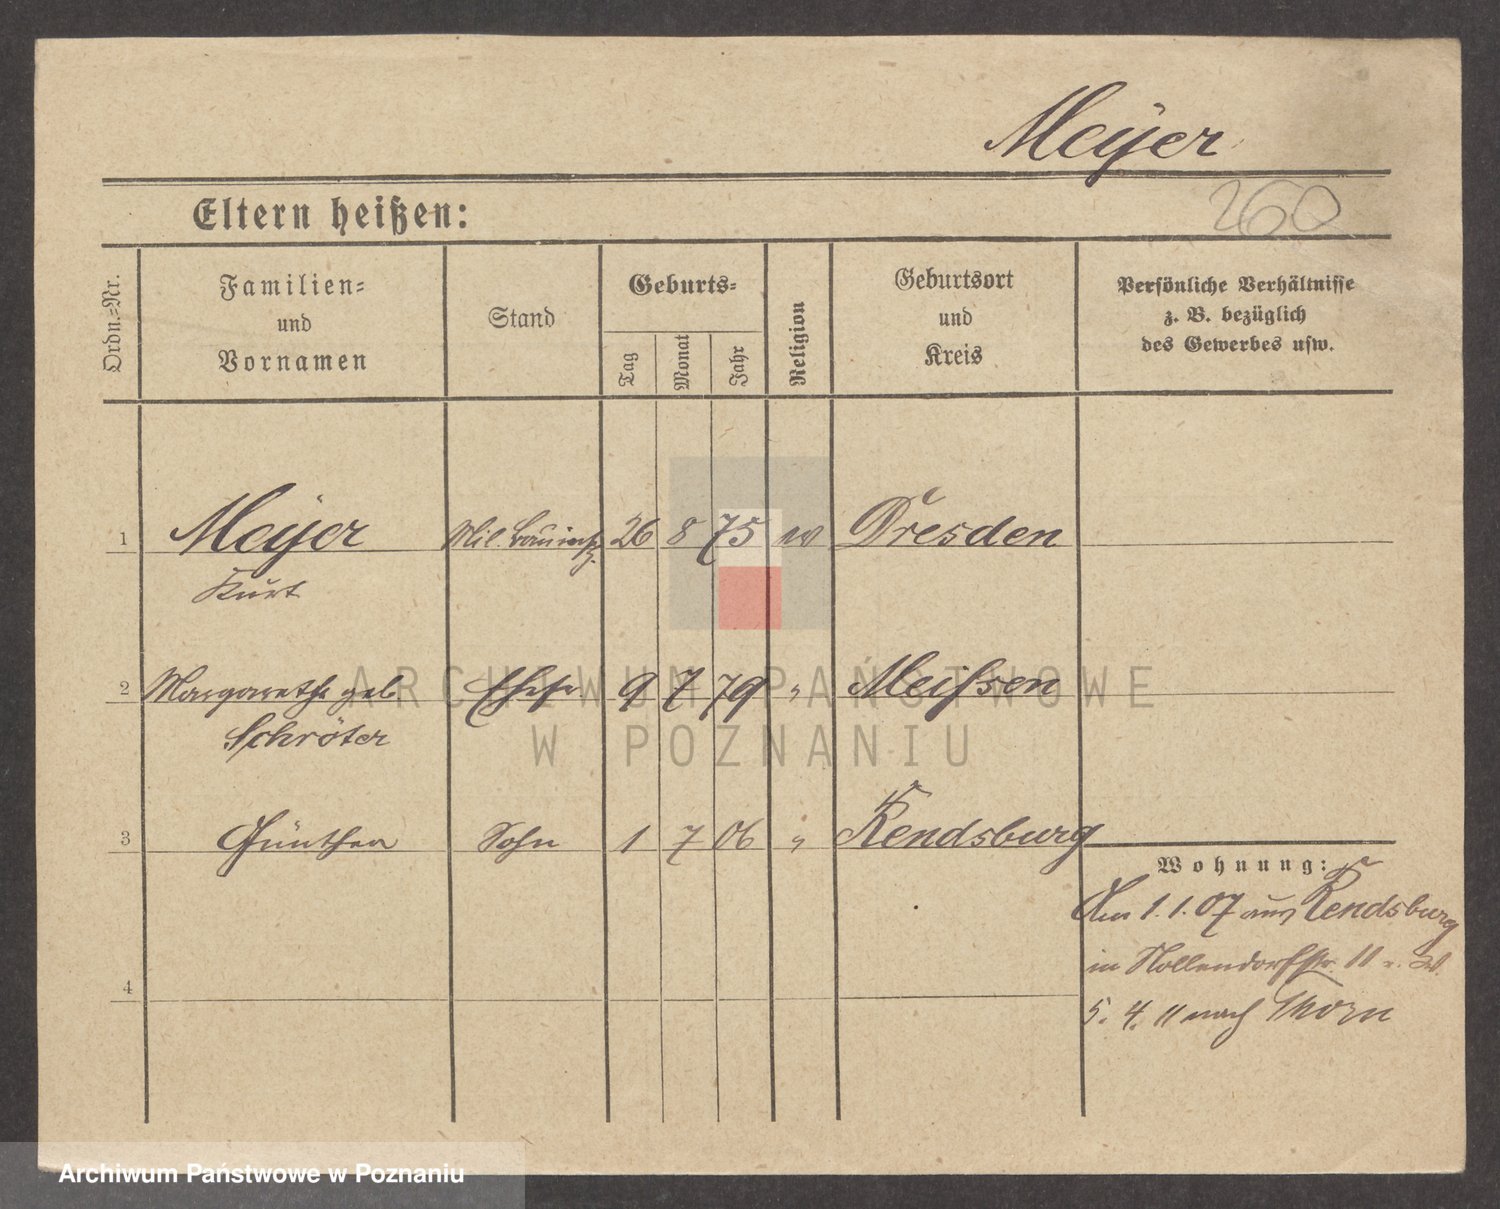 Meÿer
260
Eltern heißen:
Ordn.-Nr.
Familien-
und
Vornamen
Stand
Geburts-
Tag
Monat
Jahr
Religion
Geburtsort
und
Kreis
Persönliche Verhältnisse
z. B. bezüglich
des Gewerbes usw.
1 Meÿer Mil. Bauinsp. 26 8 75 ev Dresden
Kurt
2 Margarethe geb Ehefr 9 7 79 " Meißen
Schröter
3 Günther Sohn 1 7 06 " Rendsburg
Wohnung:
Am 1. 1. 07 aus Rendsburg
in Nollendorfstr. 11
4
5. 4. 11 nach Thorn
ARCHIWUM PAŃSTWOWE
W POZNANIU
Archiwum Państwowe w Poznaniu